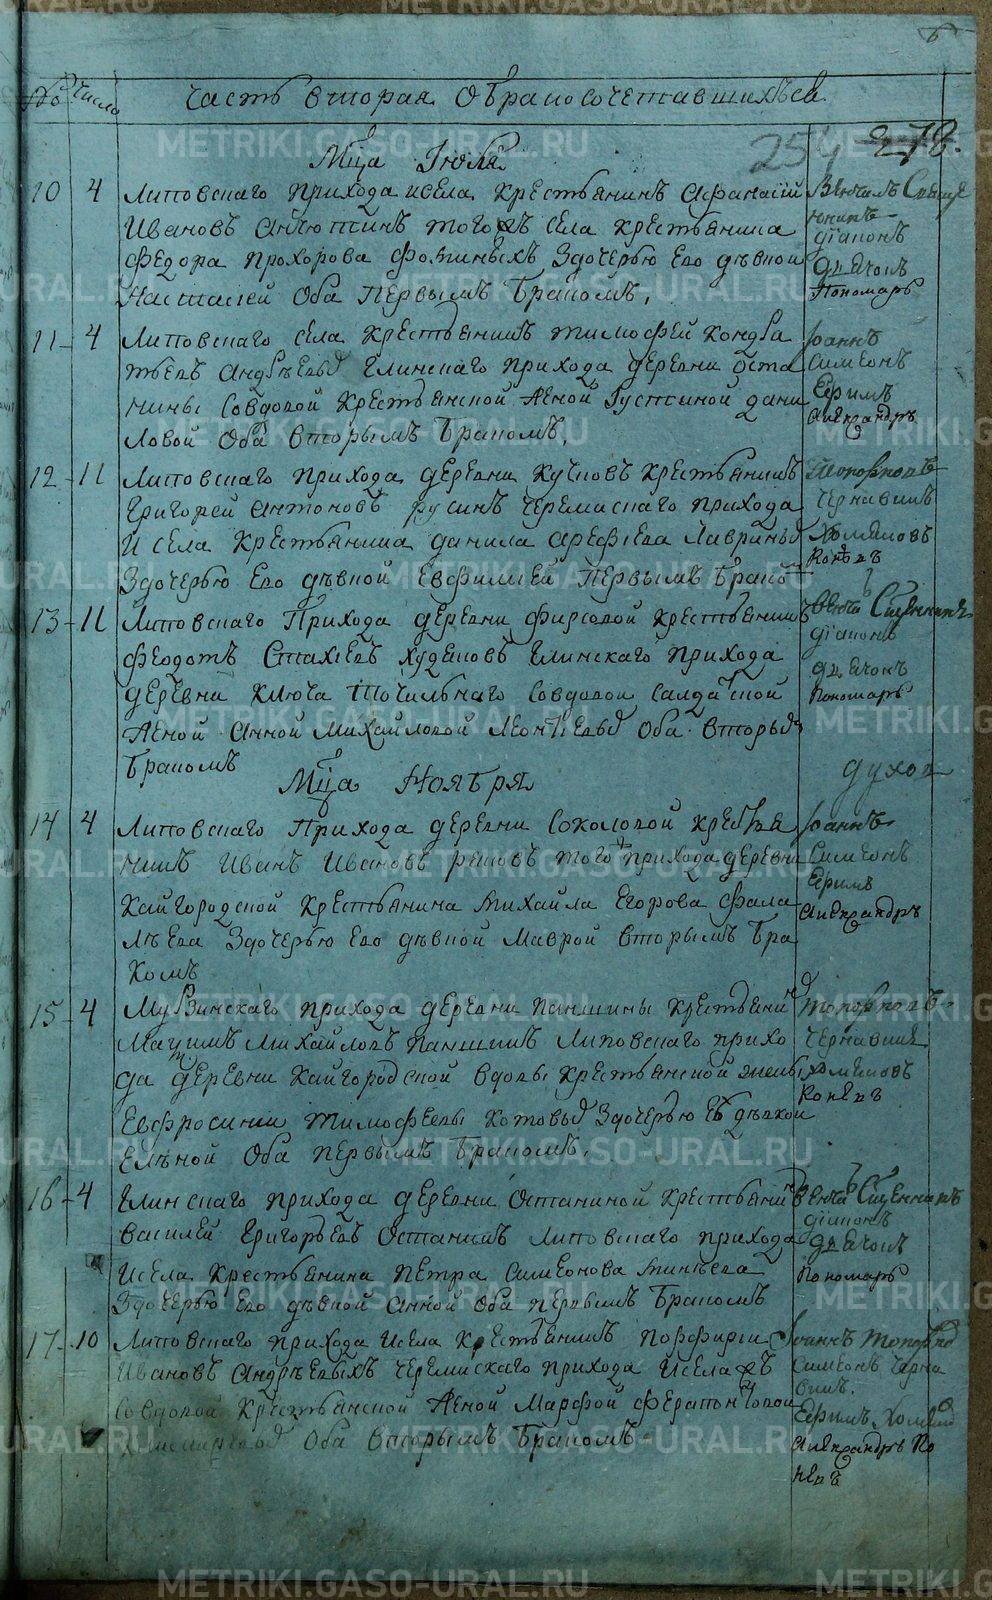 № Число Часть вторая О бракосочетавшихъся
254 278.
Мца Июля
10 4 Липовскаго прихода и села крестьянинъ Афанасий
Ивановъ того села крестьянина
Федора Прохорова Фоминыхъ З дочерью Ево девкой
Настасией Оба Первымъ Бракомъ,
Венчалъ Священникъ
диаконъ
дьячокъ
Пономарь
11 4 Липовскаго села крестьянинъ Тимофей Кондра
тьевъ Андреевъ Глинскаго прихода деревни Оста
нины Совдовой крестьянской женой Устиной Дани
ловой Оба вторымъ Бракомъ,
Иоаннъ
Симеонъ
Ефимъ
Александръ
12 11 Липовскаго прихода деревни крестьянинъ
Григорей Антоновъ Русинъ Черемисскаго прихода
и села крестьянина Данила Арефьева
З дочерью Ево девкой Евфимией Первымъ Брако
Топорковъ
Чернавинъ
Хомяковъ
Коневъ
13 11 Липовскаго Прихода деревни Фирсовой крестьянинъ
Федотъ Стахиевъ Худяковъ Глинскаго прихода
деревни Ключа Точильнаго Совдовой салдатской
женой Анной Михайловой Оба вторымъ
Бракомъ
диаконъ
дьячокъ
Пономарь
Мца Ноября
духов
14 4 Липовскаго Прихода деревни Соколовой крестья
нинъ Иванъ Ивановъ Режовъ того прихода деревни
Кайгородской крестьянина Михайла Егорова Фала
леева З дочерью Ево девкой Маврой вторымъ Бра
комъ
Иоаннъ
Симеонъ
Ефимъ
Александръ
15 4 Мурзинскаго прихода деревни Паншины крестьянинъ
Михайловъ Паншинъ Липовскаго прихо
да деревни Кайгородской вдовы крестьянской жены
Евфросинии Тимофеевы Котовы З дочерью Ея девкой
Еленой Оба первымъ Бракомъ,
Топорковъ
Чернавинъ
Хомяковъ
Коневъ
16 4 Глинскаго прихода деревни Останиной крестьянинъ
Василей Григорьевъ Останинъ Липовскаго прихода
и села крестьянина Петра Симеонова Минеева
З дочерью Ево девкой Анной Оба первымъ Бракомъ
диаконъ
дьячокъ
Пономарь
17 10 Липовскаго прихода и села крестьянинъ Порфирий
Ивановъ Андреевыхъ Черемисскаго прихода и села
Совдовой крестьянской женой Марфой Ферапонтовой
Оба вторымъ Бракомъ
Иоаннъ Топорков
Симеонъ Черна
винъ.
Ефимъ
Александръ Ко
невъ